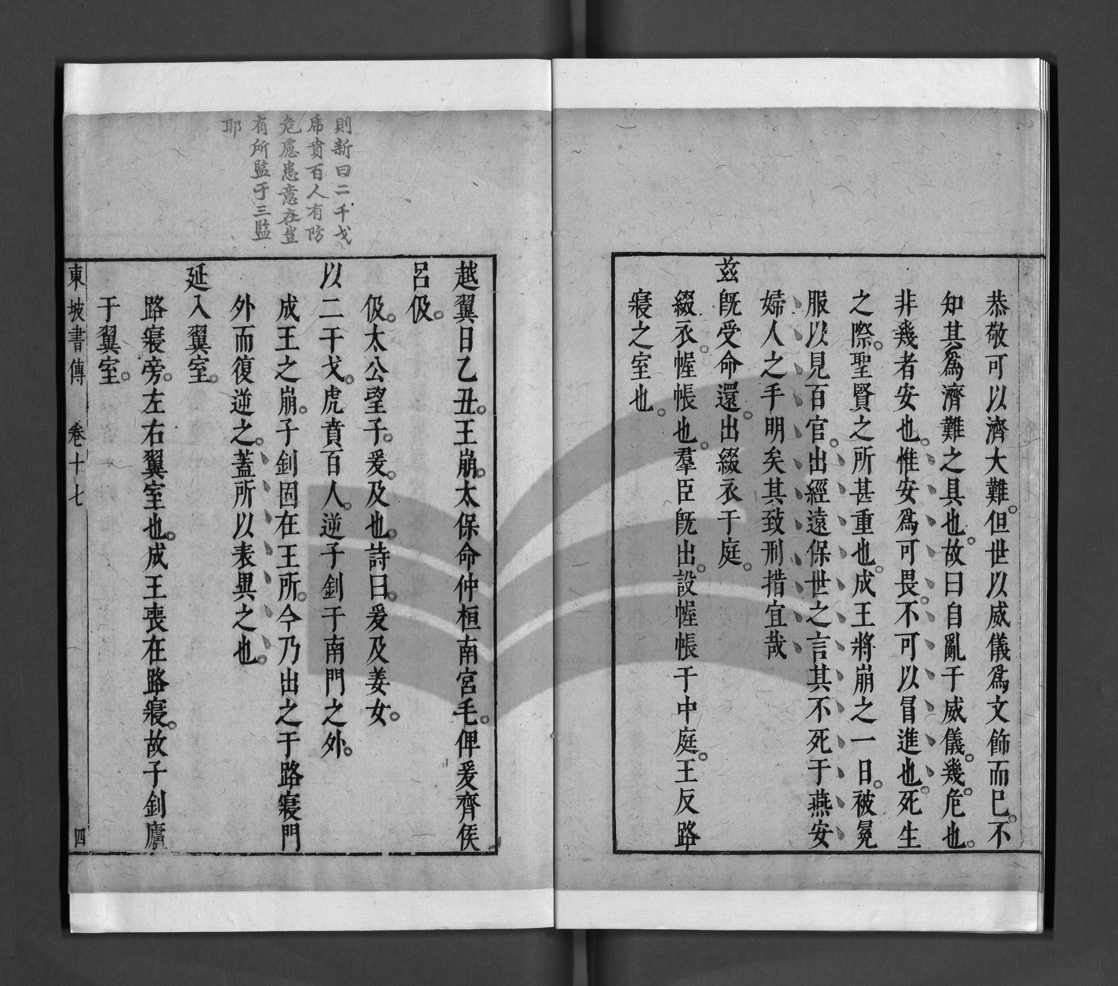 恭敬可以濟大難。但世以威儀爲文飾而已。不
知其爲濟難之具也。故曰自亂于威儀。幾危也。
非幾者安也。惟安爲可畏。不可以冒進也。死生
之際。聖賢之所甚重也。成王將崩之一日。被冕
服以見百官。出經遠保世之言。其不死于燕安
婦人之手明矣。其致刑措宜哉
茲旣受命還。出綴衣于庭。
綴衣。幄帳也。羣臣旣出。設幄帳于中庭。王反路
寢之室也。
越翼日乙丑。王崩。太保命仲桓南宮毛。俾爰齊侯
呂伋。
伋。太公望子。爰。及也。詩曰。爰及姜女。
以二干戈。虎賁百人。逆子釗于南門之外。
成王之崩。子釗固在王所。今乃出之于路寢門
外而復逆之。蓋所以表異之也。
延入翼室。
路寢旁。左右翼室也。成王喪在路寢。故子釗廬
于翼室。
東坡書傳 卷十七 四
則新曰二千戈
虎賁百人有防
危慮患意在豈
有所監于三監
耶